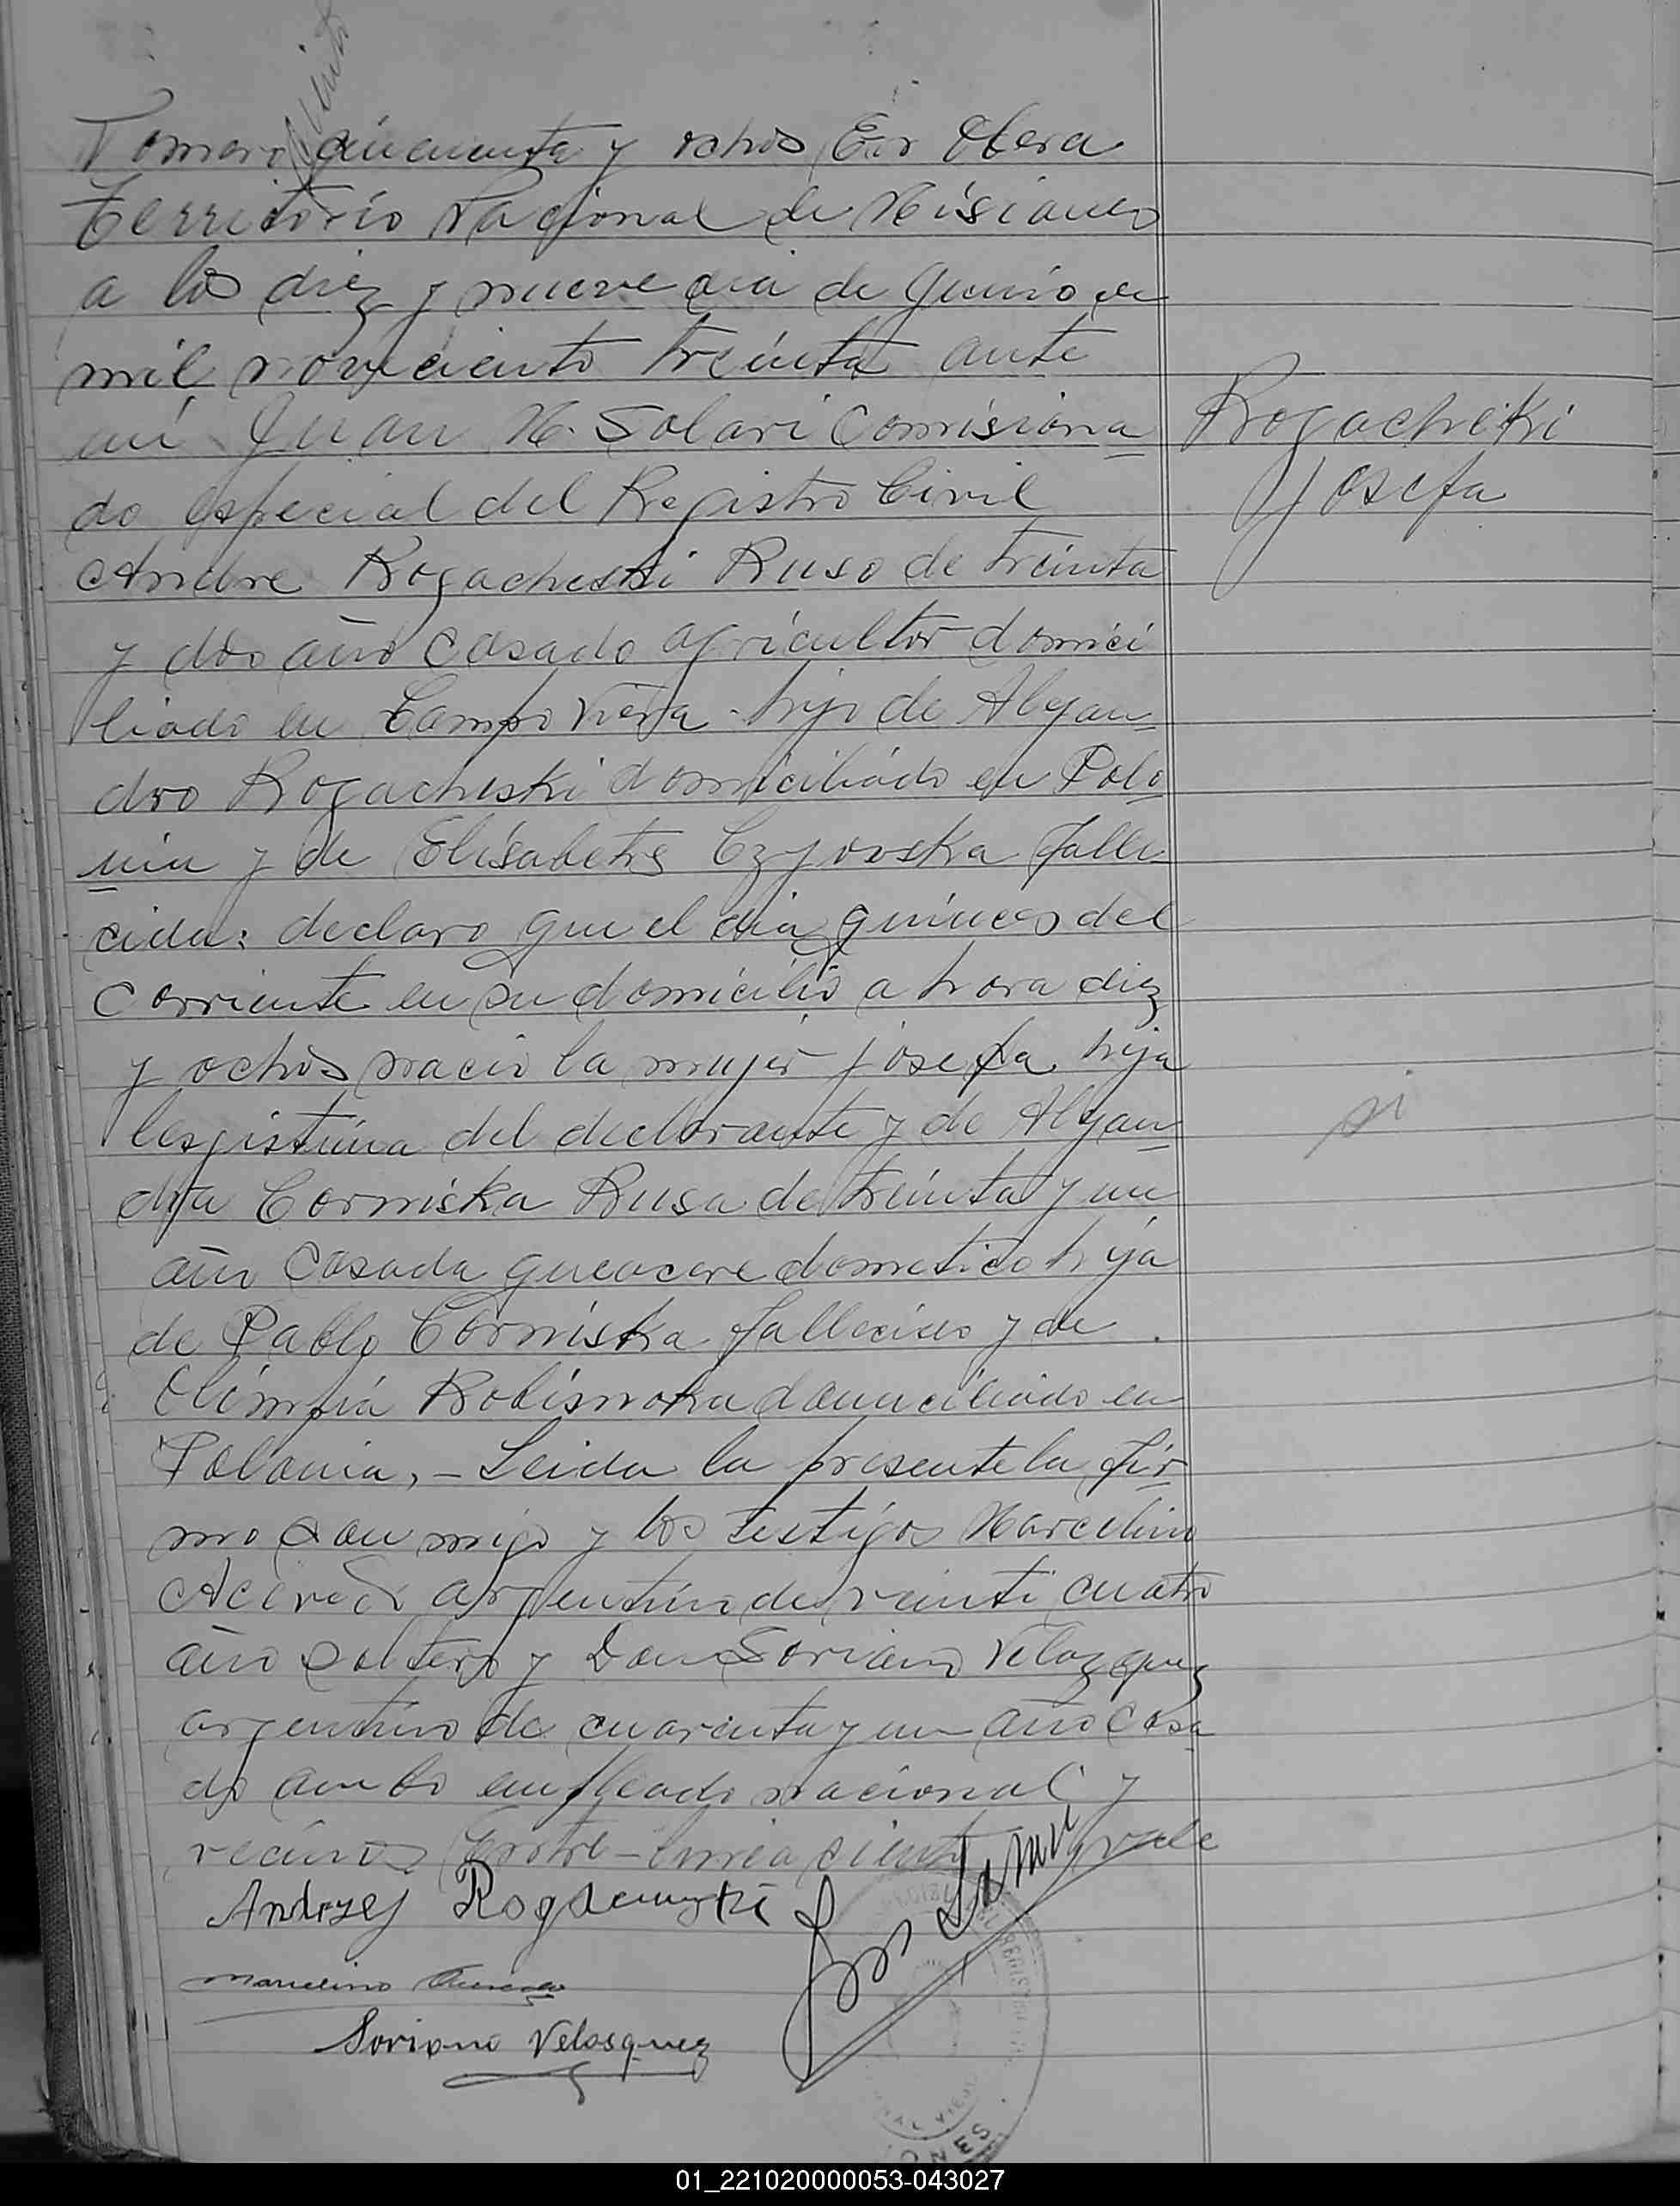 ciento
Numero cincuenta y ochos En Obera
Territorio Nacional de Misiones
a los diez y nueve dia de Junio de
mil noveciento treinta ante
mi Juan M. Solari Comisiona
Rogacheski
Josefa
do especial del Registro Civil
Andre Rogacheski Ruso de treinta
y dos año casado agricultor domici
liado en Campo Viera hijo de Alejan
dro Rogacheski domiciliado en Polo
nia y de Elisabeths Czyovska falle
cida: declaro que el dia quinces del
Corriente en su domicilio a hora diez
y ochos nacio la mujer Josefa hija
lesgistima del declarante y de Alejan
dra Corniska Rusa de treinta y un
año Casada queacere dometico hija
de Pablo Corniska fallecido y de
Olimpia domiciliado en
Polonia, - Leida la presente la fir
mo con migo y los testigos Marcelino
Acevedo argentino de veinti cuatro
año soltero y Don Soriano Velazquez
argentino de cuarenta y un año casa
do ambo empleado nacional y
vecinos Entre-linea ciento vale
Andrzej
Marcelino
Soriano Velasquez
si
01_221020000053-043027